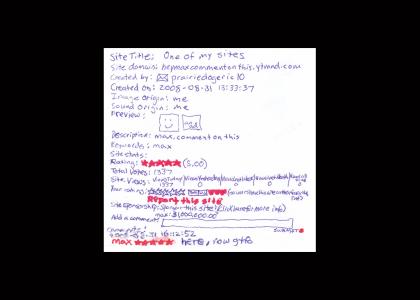 Site Title: One of my sites
Site domain: heymaxcommentonthis.ytmnd.com
Created by: prairiedogeric10
Created on: 2008-08-31 13:33:37
Image Origin: me
Sound Origin: me
Preview:
Description: max, comment on this
Keywords: max
Site stats:
Rating: ★★★★★ (5.00)
Total Votes: 1337
Site Views:
1337 0 0 0 0
Your rating:
Report this site
Site sponsorship: Sponsor this site! (Click here for more info)
max: $1,000,000.00
Add a comment:
SUBMIT
Comments:
16:12:52
max ★★★★★ here, now gtfo